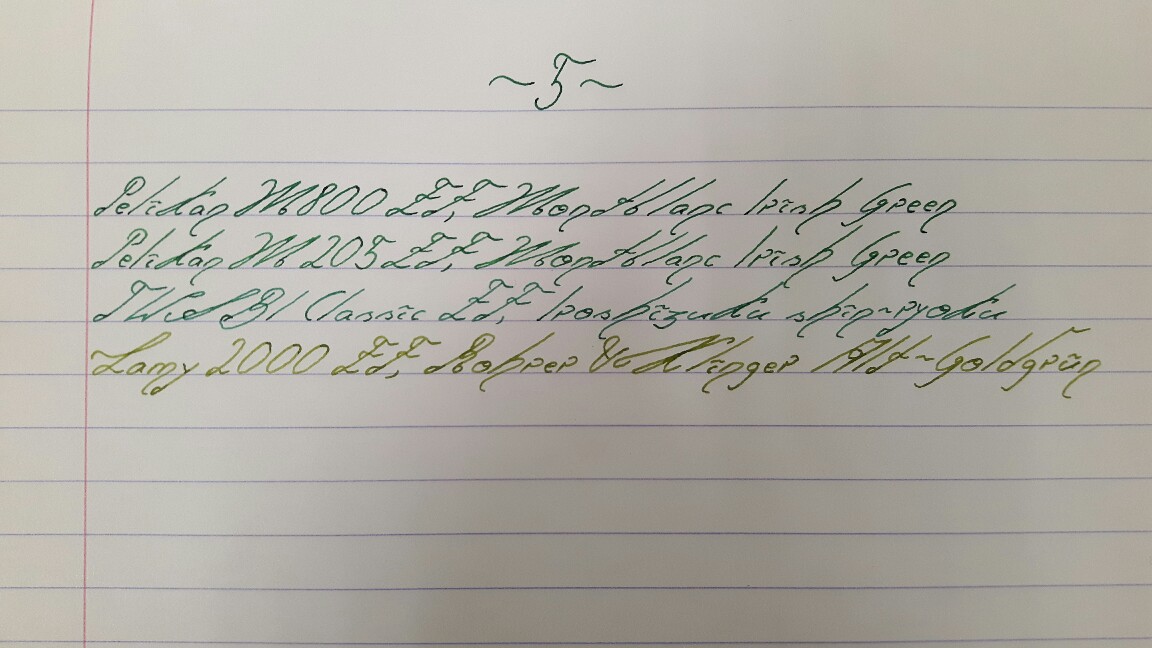 ~5~
Pelikan M800 EF, Montblanc Irish Green
Pelikan M205 EF, Montblanc Irish Green
TWSBI Classic EF, Iroshizuku shin-ryoku
Lamy 2000 EF, Rohrer & Klinger Alt-Goldgrün